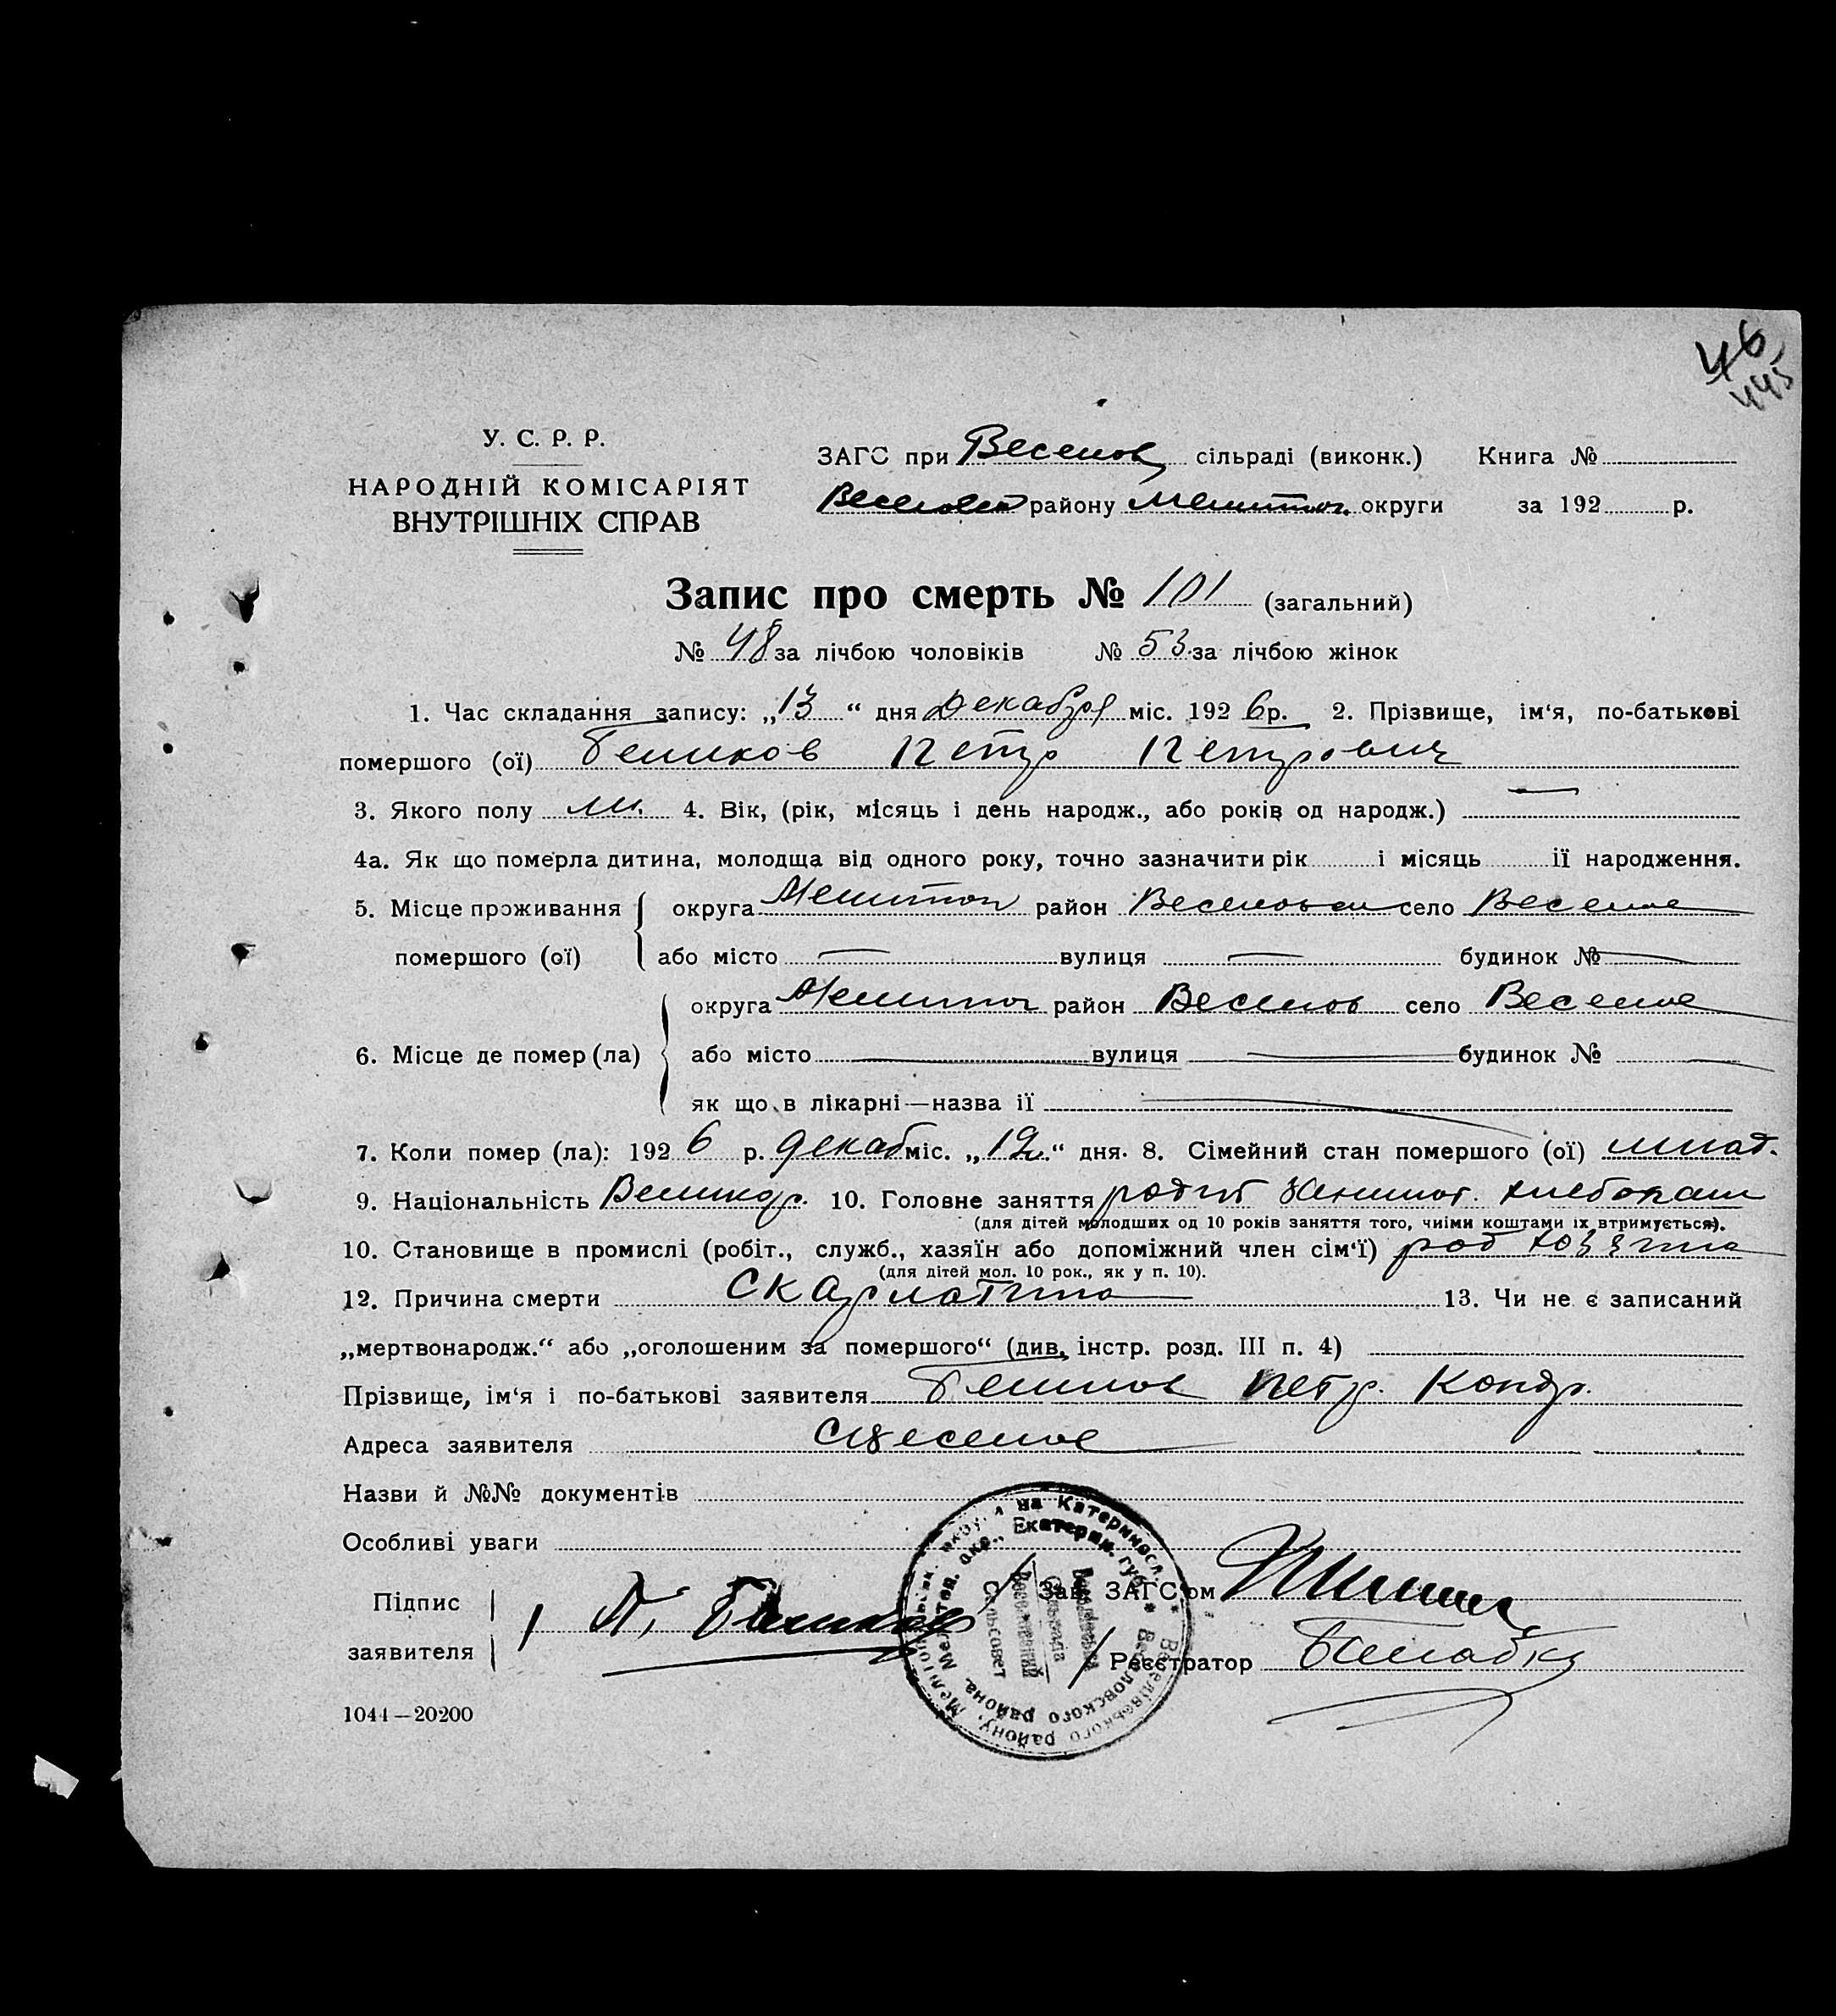 46
445
У. С. Р. Р.
НАРОДНІЙ КОМІСАРІЯТ
ВНУТРІШНІХ СПРАВ
ЗАГС при Веселов сільраді (виконк.) Книга №
Веселов району Мелитоп. округи за 192 р.
Запис про смерть № 101 (загальний)
№ 48 за лічбою чоловіків № 53 за лічбою жінок
1. Час складання запису: „13“ дня Декабря міс. 1926 р. 2. Прізвище, ім'я, по-батькові
помершого (ої) Беликов Петр Петрович
3. Якого полу м. 4. Вік, (рік, місяць і день народж., або років од народж.) —
4а. Як що померла дитина, молодща від одного року, точно зазначити рік і місяць її народження.
5. Місце проживання помершого (ої) округа Мелитоп район Веселовск село Веселое
або місто — вулиця — будинок № —
6. Місце де помер (ла) округа Мелитоп район Веселов село Веселое
або місто — вулиця — будинок № —
як що в лікарні—назва її —
7. Коли помер (ла): 1926 р. декаб міс. „12“ дня. 8. Сімейний стан помершого (ої) млад.
9. Національність Великор. 10. Головне заняття родит занимат. хлебопаш
(для дітей молодших од 10 років заняття того, чиїми коштами їх втримується).
10. Становище в промислі (робіт., служб., хазяїн або допоміжний член сім'ї) род хозяина
(для дітей мол. 10 рок., як у п. 10).
12. Причина смерти скарлатина 13. Чи не є записаний
„мертвонародж.“ або „оголошеним за помершого“ (див. інстр. розд. III п. 4)
Прізвище, ім'я і по-батькові заявителя Беликов Петр. Кондр.
Адреса заявителя с Веселое
Назви й №№ документів
Особливі уваги
Підпис заявителя П. Беликов
Зав. ЗАГС'ом
Реєстратор
Веселівського району, Мелітопільськ. округи на Катериносл.
Веселовского района, Мелитоп. окр., Екатерин. губ.
Веселівська
Сільрада
Веселовский
Сельсовет
1044—20200